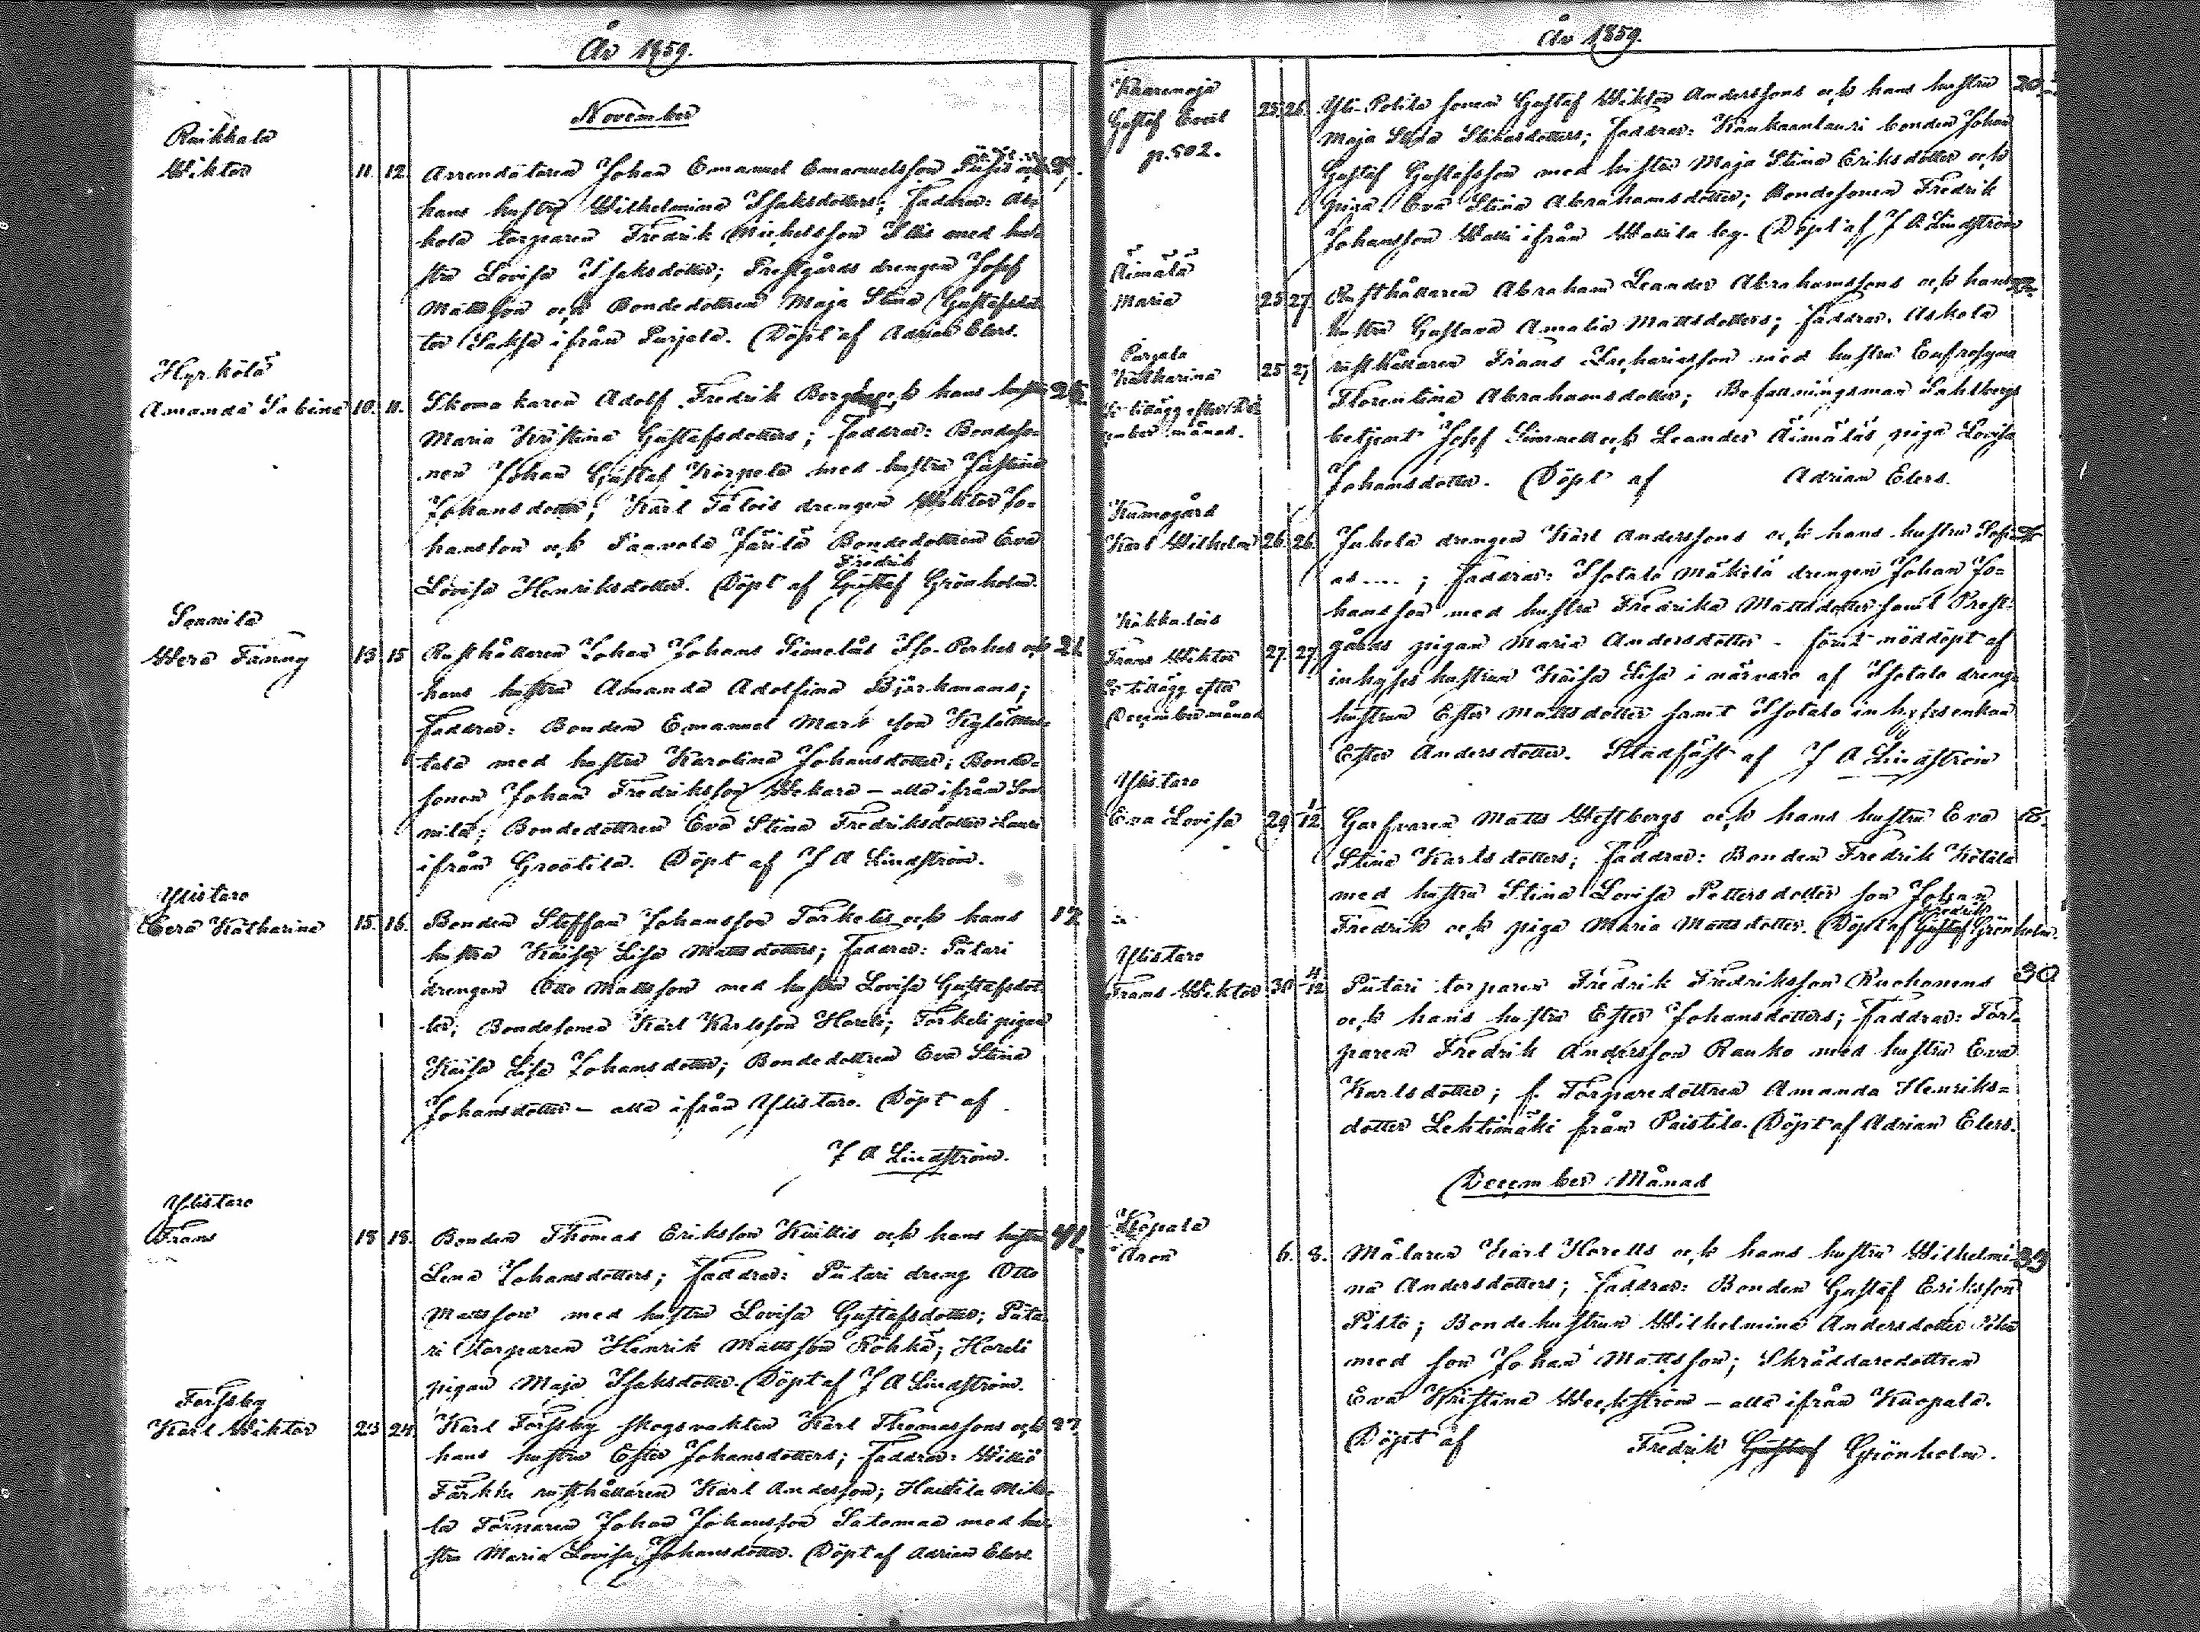 År 1859.
November
Raikkala
Wiktor 11. 12. Arrendatoren Johan Emanuel Emanuelsson
hans hustru Wilhelmina Isaksdotters; Faddrar:
kola torparen Fredrik Michelsson med hu-
stru Lovisa Isaksdotter; Prestgårds drengen Josef
Mattsson och Bondedottren Maja Stina Gustafsdot-
ter Saksa ifrån Parjela. Döpt af Adrian Elers.
Hyrkölä
Amanda Sabina 10. 11. Skomakaren Adolf Fredrik Bergs och hans hustru
Maria Kristina Gustafsdotters; Faddrar: Bondeso-
nen Johan Gustaf Korpela med hustru Justina
Johansdotter; Karl Talois drengen Wiktor Jo-
hansson och Paavola Järilä Bondedottren Eva
Fredrik
Lovisa Henriksdotter. Döpt af Gustaf Grönholm.
Sonnila
Wera Fanny 13 15 Rusthållaren Johan Johans Simelas och 21
hans hustru Amanda Adolfina Björkmans;
Faddrar: Bonden Emanuel
tala med hustru Karolina Johansdotter; Bonde-
sonen Johan Fredriksson Wekara – alla ifrån Son-
nila; Bondedottren Eva Stina Fredriksdotter Lauri
ifrån Grootila. Döpt af J A Lindström.
Ylistaro
Eva Katharina 15. 16. Bonden Steffan Johansson Torkelis och hans 17
hustru Kaisa Lisa Mattsdotters; Faddrar: Pütari
drengen Otto Mattsson med hustru Lovisa Gustafsdot-
ter; Bondesonen Karl Karlsson Horeli; Torkeli pigan
Kaisa Lisa Johansdotter; Bondedottren Eva Stina
Johansdotter – alla ifrån Ylistaro. Döpt af
J A Lindström.
Ylistaro
Frans 18 18. Bonden Thomas Eriksson Kuittis och hans hustru 41
Lena Johansdotters; Faddrar: Pütari dreng Otto
Mattsson med hustru Lovisa Gustafsdotter; Püta-
ri torparen Henrik Mattsson Röhkä; Horeli
pigan Maja Isaksdotter. Döpt af J A Lindström.
Forssby
Karl Wiktor 23 24. Karl Forssby skogsvakten Karl Thomassons och 27
hans hustru Ester Johansdotters; Faddrar:
Färkki rusthållaren Karl Andersson; Haitila Mik-
la Torparen Johan Johansson Satomaa med hu-
stru Maria Lovisa Johansdotter. Döpt af Adrian Elers.
År 1859.
Kaaremoja
Gustaf Evert 25. 26. Yli-Potila sonen Gustaf Wiktor Anderssons och hans hustru
p.502. Maja Stina Faddrar: bonden Johan
Gustaf Gustafsson med hustru Maja Stina Eriksdotter och
piga Eva Stina Abrahamsdotter; Bondesonen Fredrik
Johansson Walli ifrån Wallila by. Döpt af J A Lindström
Äimälä
Maria 25 27. Rusthållaren Abraham Leander Abrahamssons och hans
hustru Gustava Amalia Mattsdotters; faddrar. Askola
Parjala
Katharina 25 27 rusthållaren Frans Zachariasson med hustru Eufrosyna
Se tillägg efter Dec-
ember månad.
Florentina Abrahamsdotter; Befallningsman Sahlbergs
betjent Josef Simmell och Leander Äimäläs piga Lovisa
Johansdotter. Döpt af Adrian Elers.
Kumogård
Karl Wilhelm 26. 26. Juhola drengen Karl Anderssons och hans hustru Sofi-
as .... ; Faddrar: Isotalo Mäkelä drengen Johan Jo-
hansson med hustru Fredrika Mattsdotter samt Prest-
Kakkalais
Frans Wiktor 27. 27. gårds pigan Maria Andersdotter – förut nöddöpt af
inhyses hustrun Kaisa Lisa i närvaro af Isotalo dreng-
Se tillägg efter
December månad
hustrun Ester Mattsdotter samt Isotalo inhysesenkan
Ester Andersdotter. Stadfäst af J A Lindström
Ylistaro
Eva Lovisa 29 1/12 Garfvaren Matts Westbergs och hans hustru Eva
Stina Karlsdotters; Faddrar: Bonden Fredrik Kölila
med hustru Stina Lovisa Pettersdotter son Johan
Fredrik
Fredrik och piga Maria Mattsdotter. Döpt af Gustaf Grönholm.
Ylistaro
Frans Wiktor 30 4/12 Pütari torparen Fredrik Fredriksson Ruohonens 30
och hans hustru Ester Johansdotters; Faddrar: Tor-
paren Fredrik Andersson Rauko med hustru Eva
Karlsdotter; f. Torparedottren Amanda Henriks-
dotter Lehtimäki från Paistila. Döpt af Adrian Elers.
December Månad
Kuopala
Aron 6. 8. Målaren Karl Horells och hans hustru Wilhelmi- 39
na Andersdotters; Faddrar: Bonden Gustaf Eriksson
Pilto; Bondehustrun Wilhelmina Andersdotter
med son Johan Mattsson; Skräddaredottren
Eva Kristina Weckström – alla ifrån Kuopala.
Döpt af Fredrik Gustaf Grönholm.